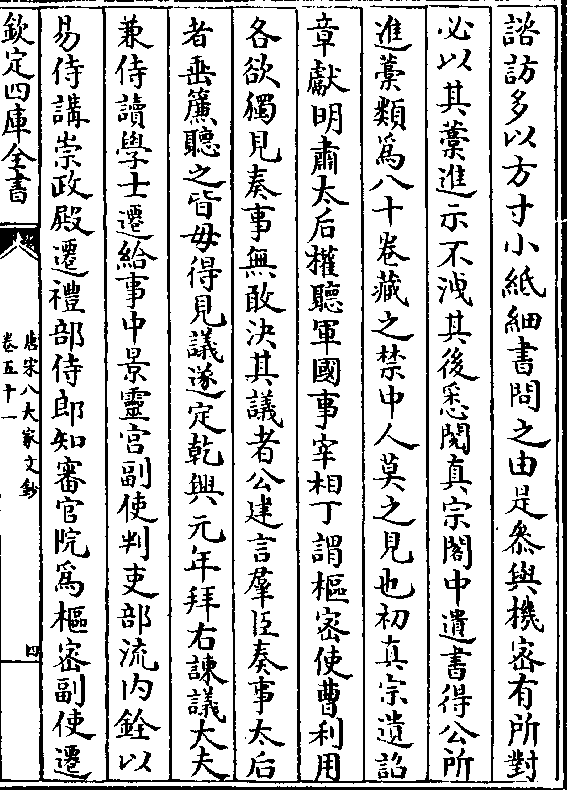 諮訪多以方寸小紙細書問之由是參與機密有所對
必以其藁進示不洩其後悉閱真宗閣中遺書得公所
進藁類為八十卷藏之禁中人莫之見也初真宗遺詔
章獻明肅太后權聽軍國事宰相丁謂樞密使曹利用
各欲獨見奏事無敢決其議者公建言羣臣奏事太后
者垂簾聽之皆毋得見議遂定乾興元年拜右諫議大夫
兼侍讀學士遷給事中景靈宮副使判吏部流内銓以
易侍講崇政殿遷禮部侍郎知審官院為樞密副使遷
欽定四庫全書
唐宋八大家文鈔
卷五十一
四